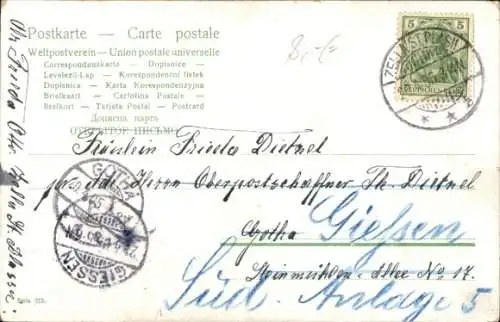 Postkarte — Carte postale
Weltpostverein – Union postale universelle
Correspondenzkarte — Dopisnice —
Levelező-Lap — Korespondenční lístek
Dopisnica — Karta Korespondencyjna
Briefkaart — Cartolina Postale —
Brefkort — Tarjeta Postal — Postcard
Дописна карта
ОТКРЫТОЕ ПИСЬМО
8,-
5 5
DEUTSCHES REICH
ZELLA ST. BLASII
Fräulein Frieda Dietnel
per Adr. Herrn Oberpostschaffner Th. Dietnel
Gotha Gießen
Steinmühlen-Allee No 17.
Süd-Anlage 5
GOTHA
GIESSEN
Frieda
Zella St. Blasii
Serie